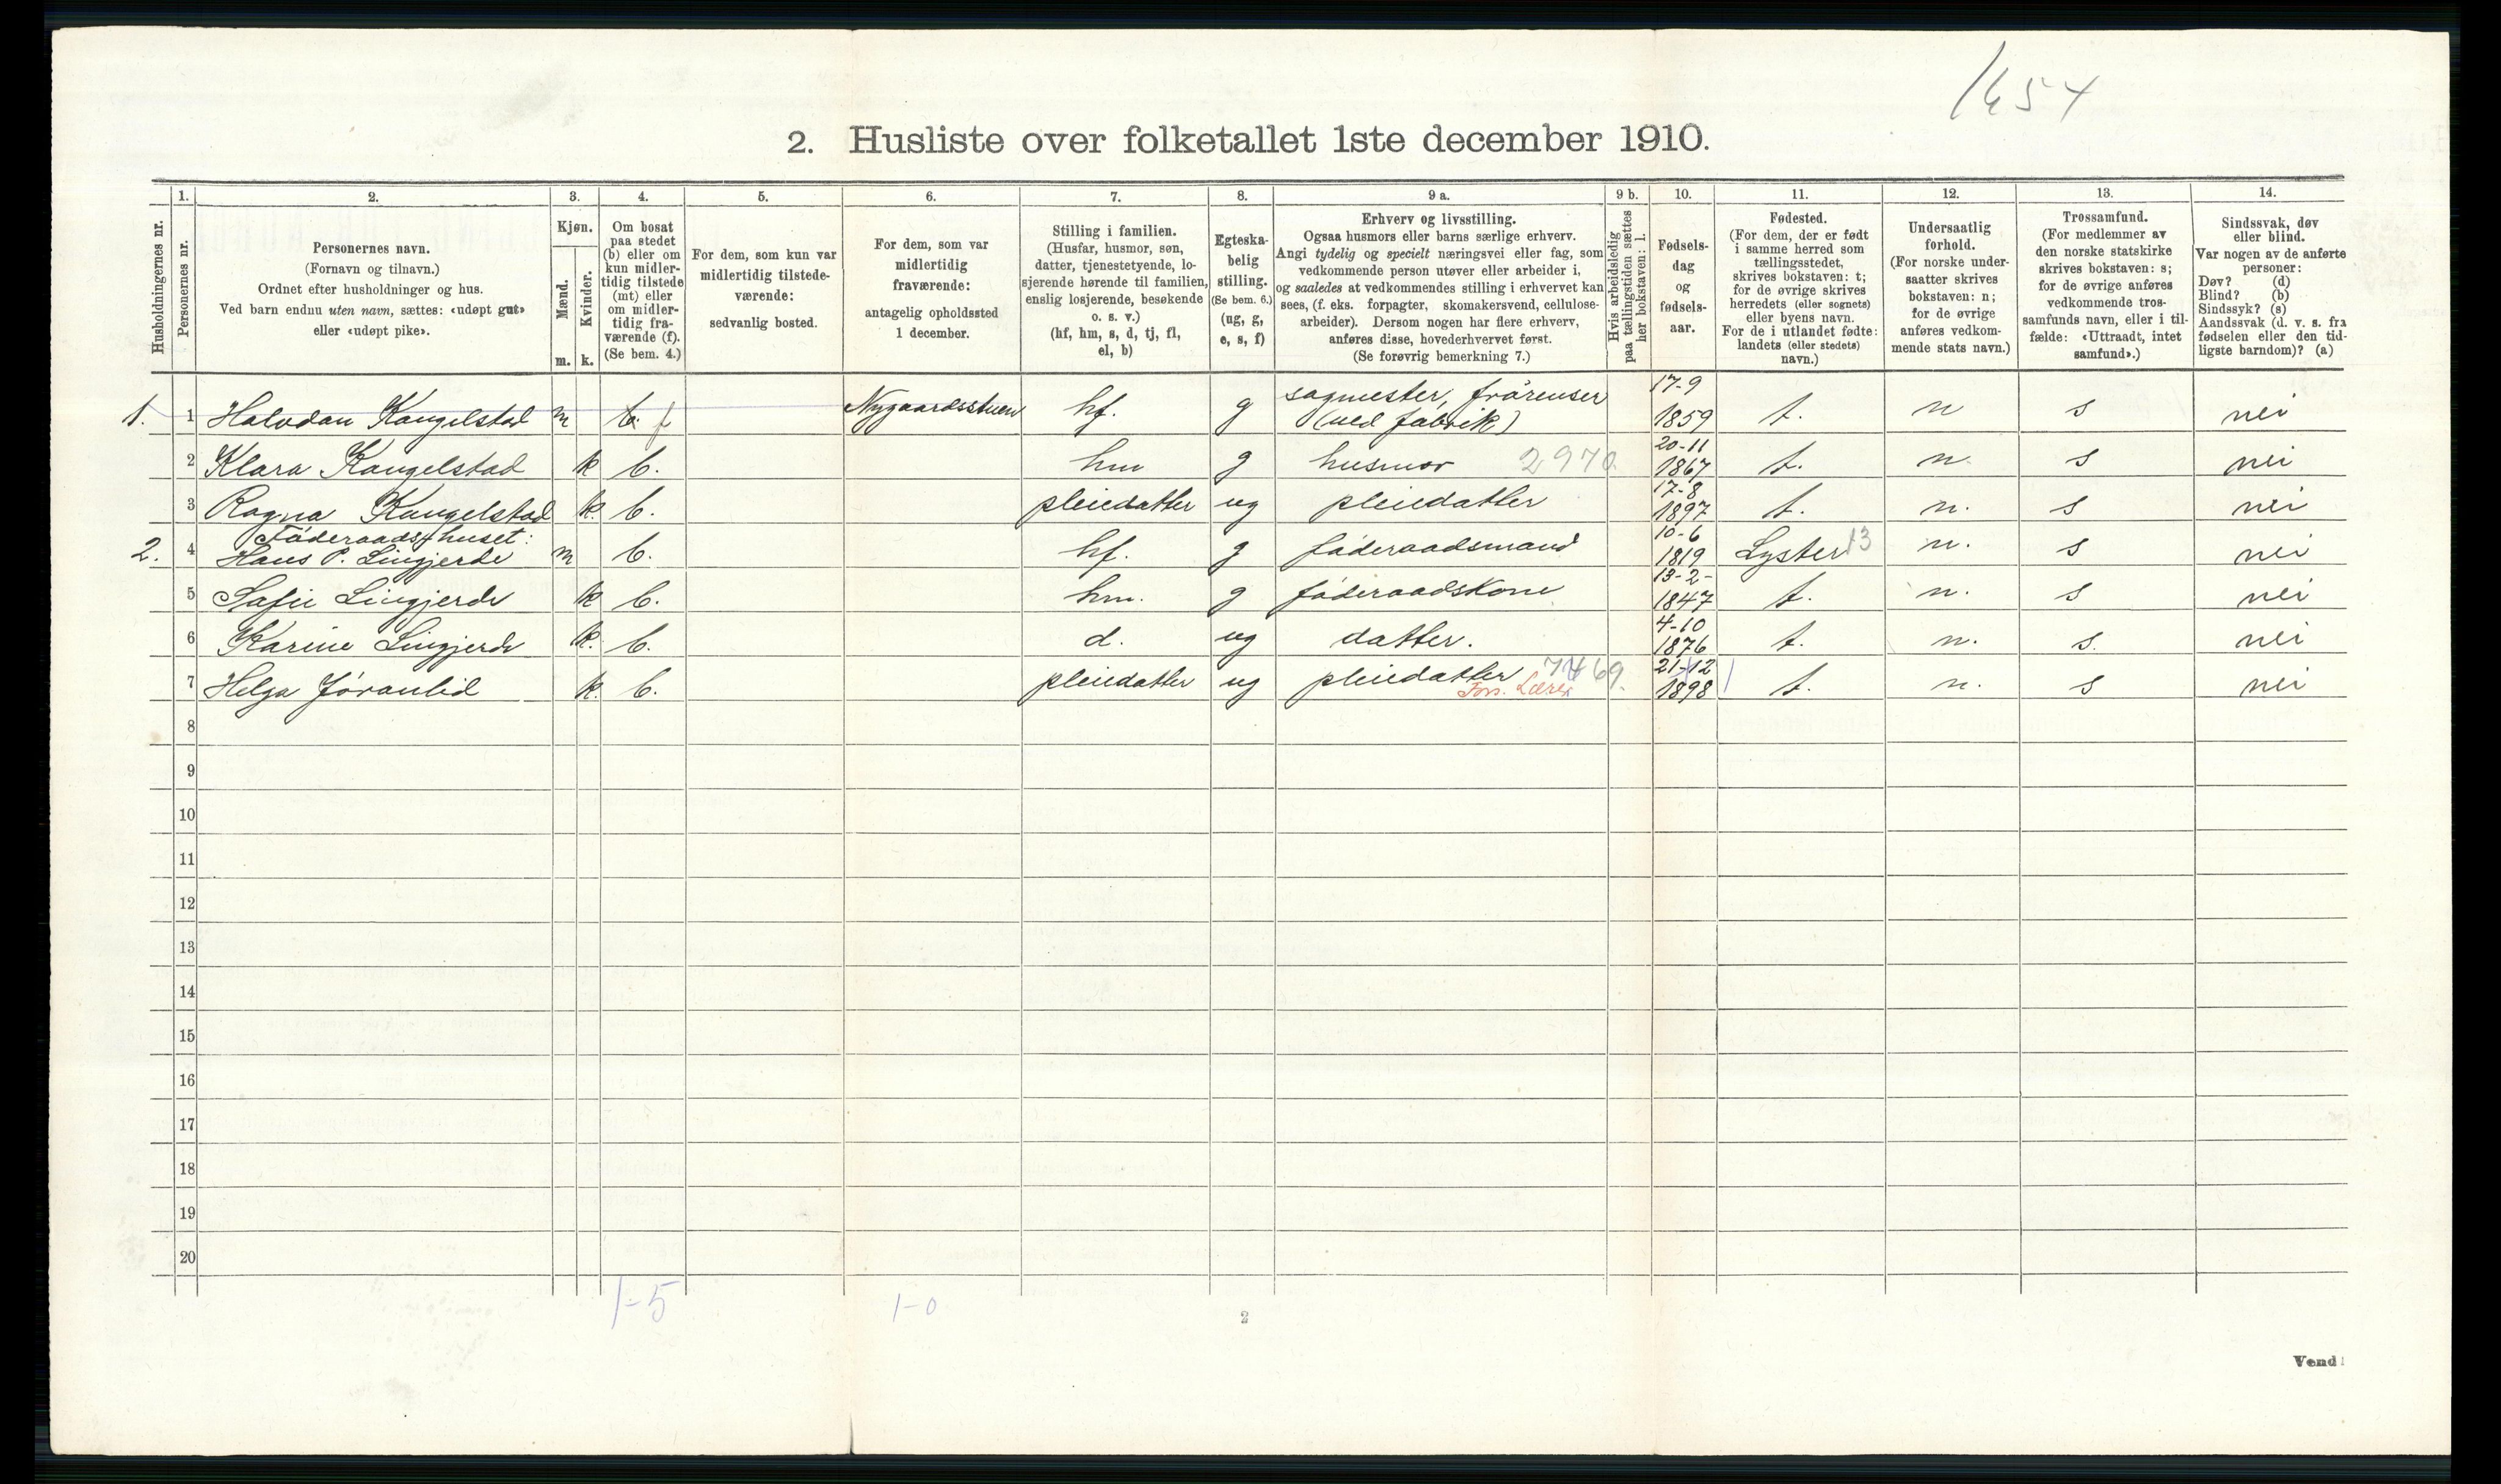 1654
2. Husliste over folketallet 1ste december 1910.
1. 2. 3. 4. 5. 6. 7. 8. 9 a. 9 b. 10. 11. 12. 13. 14.
Husholdningernes nr.
Personernes nr.
Personernes navn.
(Fornavn og tilnavn.)
Ordnet efter husholdninger og hus.
Ved barn endnu uten navn, sættes: «udøpt gut»
eller «udøpt pike».
Kjøn.
Mænd.
m.
Kvinder.
k.
Om bosat
paa stedet
(b) eller om
kun midler-
tidig tilstede
(mt) eller
om midler-
tidig fra-
værende (f).
(Se bem. 4.)
For dem, som kun var
midlertidig tilstede-
værende:
sedvanlig bosted.
For dem, som var
midlertidig
fraværende:
antagelig opholdssted
1 december.
Stilling i familien.
(Husfar, husmor, søn,
datter, tjenestetyende, lo-
sjerende hørende til familien,
enslig losjerende, besøkende
o. s. v.)
(hf, hm, s, d, tj, fl,
el, b)
Egteska-
belig
stilling.
(Se bem. 6.)
(ug, g,
e, s, f)
Erhverv og livsstilling.
Ogsaa husmors eller barns særlige erhverv.
Angi tydelig og specielt næringsvei eller fag, som
vedkommende person utøver eller arbeider i,
og saaledes at vedkommendes stilling i erhvervet kan
sees, (f. eks. forpagter, skomakersvend, cellulose-
arbeider). Dersom nogen har flere erhverv,
anføres disse, hovederhvervet først.
(Se forøvrig bemerkning 7.)
Hvis arbeidsledig
paa tællingstiden sættes
her bokstaven: l.
Fødsels-
dag
og
fødsels-
aar.
Fødested.
(For dem, der er født
i samme herred som
tællingsstedet,
skrives bokstaven: t;
for de øvrige skrives
herredets (eller sognets)
eller byens navn.
For de i utlandet fødte:
landets (eller stedets)
navn.)
Undersaatlig
forhold.
(For norske under-
saatter skrives
bokstaven: n;
for de øvrige
anføres vedkom-
mende stats navn.)
Trossamfund.
(For medlemmer av
den norske statskirke
skrives bokstaven: s;
for de øvrige anføres
vedkommende tros-
samfunds navn, eller i til-
fælde: «Uttraadt, intet
samfund».)
Sindssvak, døv
eller blind.
Var nogen av de anførte
personer:
Døv? (d)
Blind? (b)
Sindssyk? (s)
Aandssvak (d. v. s. fra
fødselen eller den tid-
ligste barndom)? (a)
1. 1 Halvdan Kangelstad m b. f Nygaardsstuen hf. g sagmester, frørenser (ved fabrik) 17-9 1859 t. n s nei
2 Klara Kangelstad k b. hm g husmor 2970. 20-11 1867 t. n. s nei
3 Ragna Kangelstad k. b. pleiedatter ug pleiedatter 17-8 1897 t. n. s nei
Føderaadshuset:
2. 4 Hans P. Lingjerde m b. hf. g føderaadsmand 10-6 1819 Lyster 13 n. s nei
5 Sofie Lingjerde k b. hm. g føderaadskone 13-2- 1847 t. n. s nei
6 Karine Lingjerde k. b. d. ug datter. 4-10 1876 t. n. s. nei
7 Helga Jøranlid k. b. pleiedatter ug pleiedatter Fors. Lærer 21-12 1898 t. n. s nei
8
9
10
11
12
13
14
15
16
17
18
19
20
1-5 1-0
2
Vend!